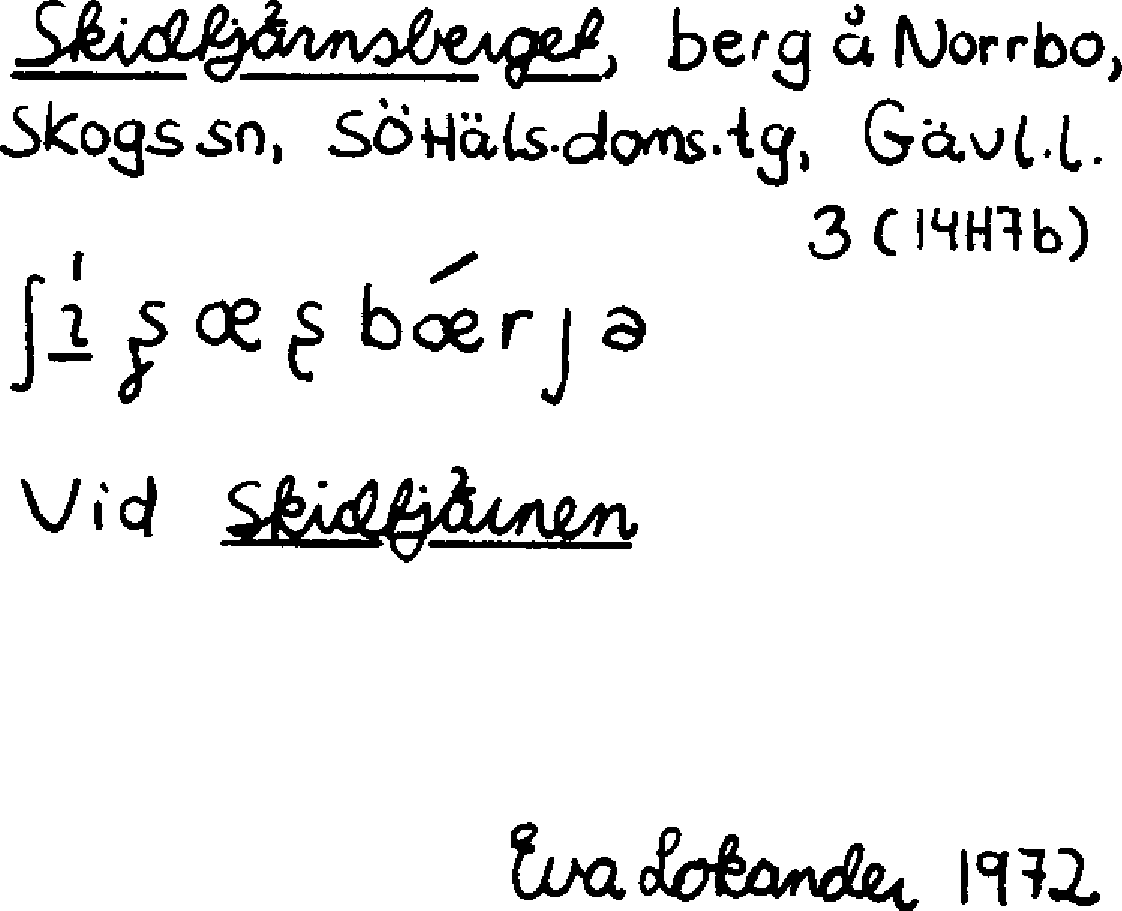 Skidtjärnsberget, berg å Norrbo,
Skogs sn, SöHäls.doms.tg, Gävl.l.
3 (14H7b)
Vid Skidtjärnen
Eva Lokander 1972